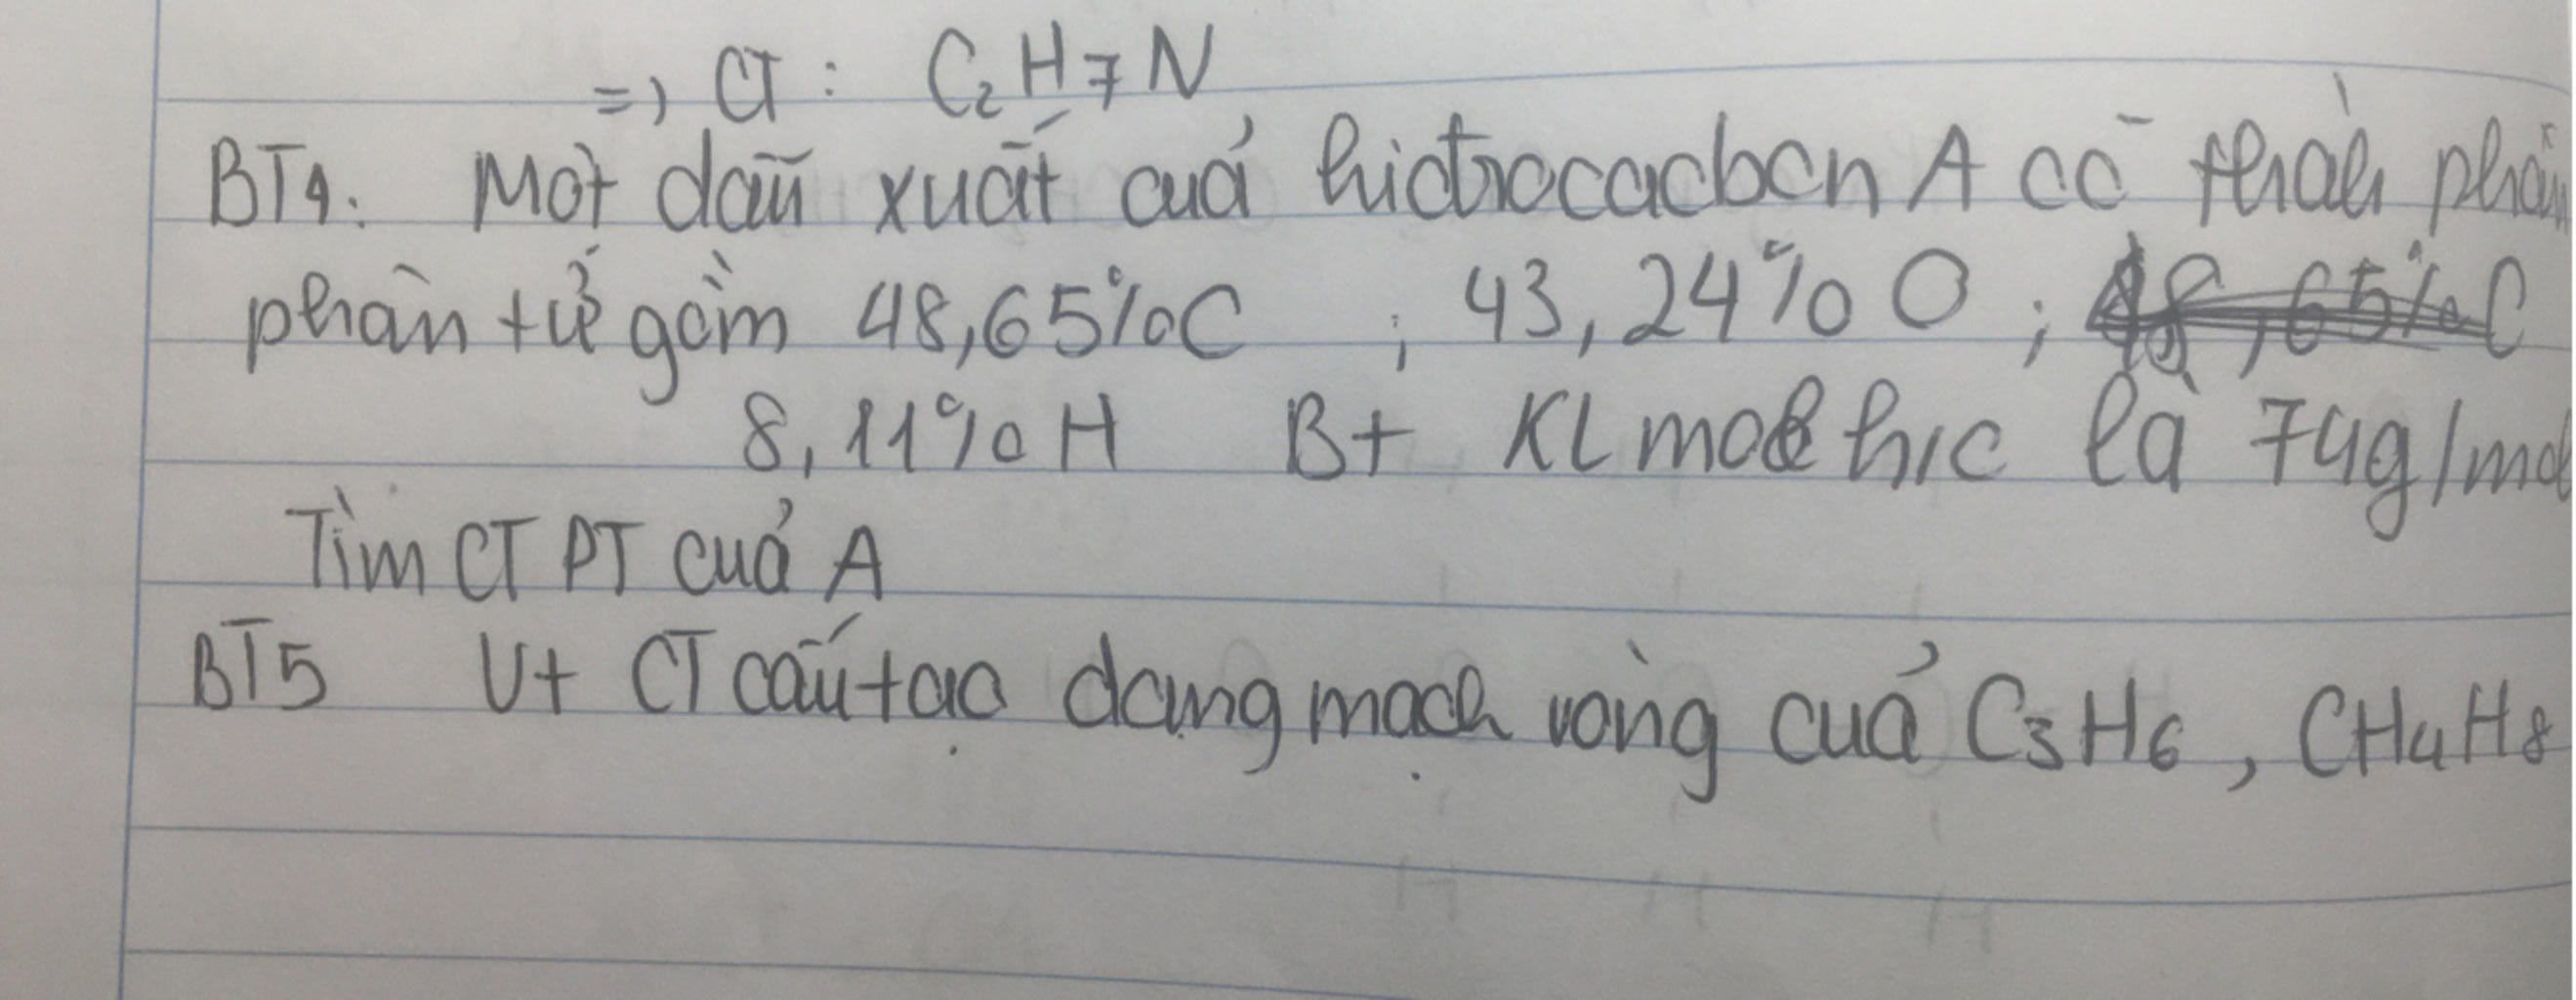 =) CT : C₂H₇N
BT4: Một dẫn xuất cuả hiđrocacbon A có thàh phần
phân tử gồm 48,65%C ; 43,24%O ; 48,65%C
8,11%H Bt KL mol h/c là 74g/mol
Tìm CT PT cuả A
BT5 Vt CT cấu tạo dạng mạch vòng cuả C₃H₆, CH₄H₈